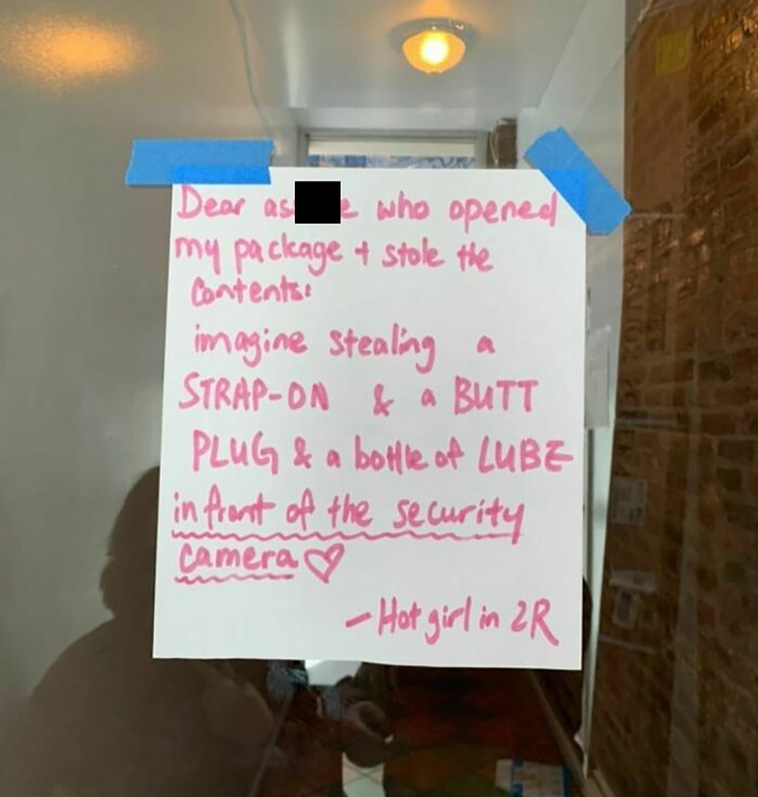 Dear as e who opened
my package + stole the
Contents:
imagine stealing a
STRAP-ON & a BUTT
PLUG & a bottle of LUBE
in front of the security
camera♡
- Hot girl in 2R